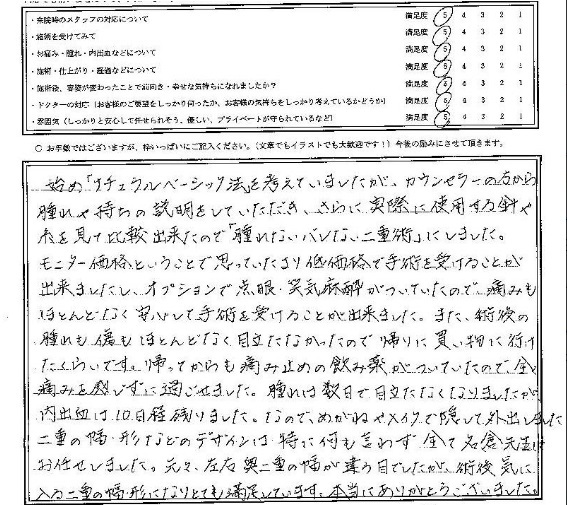 ・来院時のスタッフの対応について 満足度 5 4 3 2 1
・施術を受けてみて 満足度 5 4 3 2 1
・お痛み・腫れ・内出血などについて 満足度 5 4 3 2 1
・施術・仕上がり・経過などについて 満足度 5 4 3 2 1
・施術後、容姿が変わったことで前向き・幸せな気持ちになれましたか? 満足度 5 4 3 2 1
・ドクターの対応(お客様のご要望をしっかり伺ったか、お客様の気持ちをしっかり考えているかどうか) 満足度 5 4 3 2 1
・雰囲気(しっかりと安心して任せられそう、優しい、プライベートが守られているなど) 満足度 5 4 3 2 1
○ お手数ではございますが、枠いっぱいにご記入ください。(文章でもイラストでも大歓迎です!)今後の励みにさせて頂きます。
始め「ナチュラルベーシック法」を考えていましたが、カウンセラーの方から
腫れや持ちの説明をしていただき、さらに実際に使用する針や
糸を見て比較出来たので「腫れないバレない二重術」にしました。
モニター価格ということで思っていたより低価格で手術を受けることが
出来ましたし、オプションで点眼・笑気麻酔がついていたので、痛みも
ほとんどなく安心して手術を受けることが出来ました。また、術後の
腫れも傷もほとんどなく目立たなかったので帰りに買い物に行け
たくらいです。帰ってからも痛み止めの飲み薬がついていたので、全く
痛みを感じずに過ごせました。腫れは数日で目立たなくなりましたが
内出血は10日程残りました。なので、めがねやメイクで隠して外出しました
二重の幅・形などのデザインは特に何も言わず全て名倉先生に
お任せしました。元々、左右奥二重の幅が違う目でしたが、術後、気に
入る二重の幅・形になりとても満足しています。本当にありがとうございました。